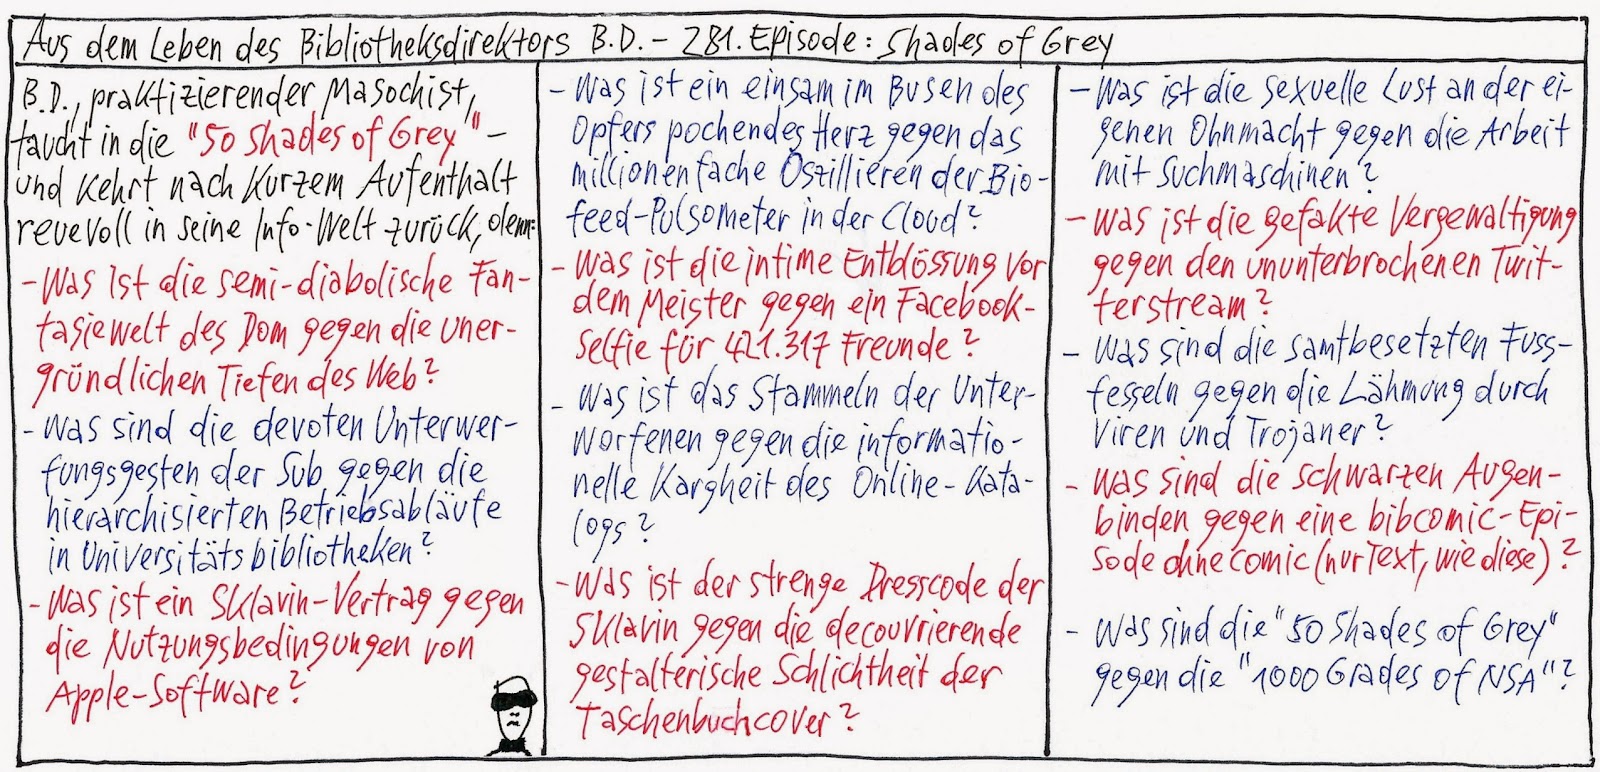 Aus dem Leben des Bibliotheksdirektors B.D. – 281. Episode: Shades of Grey
B.D., praktizierender Masochist,
taucht in die "50 Shades of Grey" –
und kehrt nach kurzem Aufenthalt
reuevoll in seine Info-Welt zurück, denn:
- Was ist die semi-diabolische Fan-
tasiewelt des Dom gegen die uner-
gründlichen Tiefen des Web?
- Was sind die devoten Unterwer-
fungsgesten der Sub gegen die
hierarchisierten Betriebsabläufe
in Universitätsbibliotheken?
- Was ist ein Sklavin-Vertrag gegen
die Nutzungsbedingungen von
Apple-Software?
- Was ist ein einsam im Busen des
Opfers pochendes Herz gegen das
millionenfache Oszillieren der Bio-
feed-Pulsometer in der Cloud?
- Was ist die intime Entblössung vor
dem Meister gegen ein Facebook-
Selfie für 421.317 Freunde?
- Was ist das Stammeln der Unter-
worfenen gegen die informatio-
nelle Kargheit des Online-Kata-
logs?
- Was ist der strenge Dresscode der
Sklavin gegen die decouvrierende
gestalterische Schlichtheit der
Taschenbuchcover?
- Was ist die sexuelle Lust an der ei-
genen Ohnmacht gegen die Arbeit
mit Suchmaschinen?
- Was ist die gefakte Vergewaltigung
gegen den ununterbrochenen Twit-
terstream?
- Was sind die samtbesetzten Fuss-
fesseln gegen die Lähmung durch
Viren und Trojaner?
- Was sind die schwarzen Augen-
binden gegen eine bibcomic-Epi-
sode ohne comic (nur Text, wie diese)?
- Was sind die "50 Shades of Grey"
gegen die "1000 Grades of NSA"?